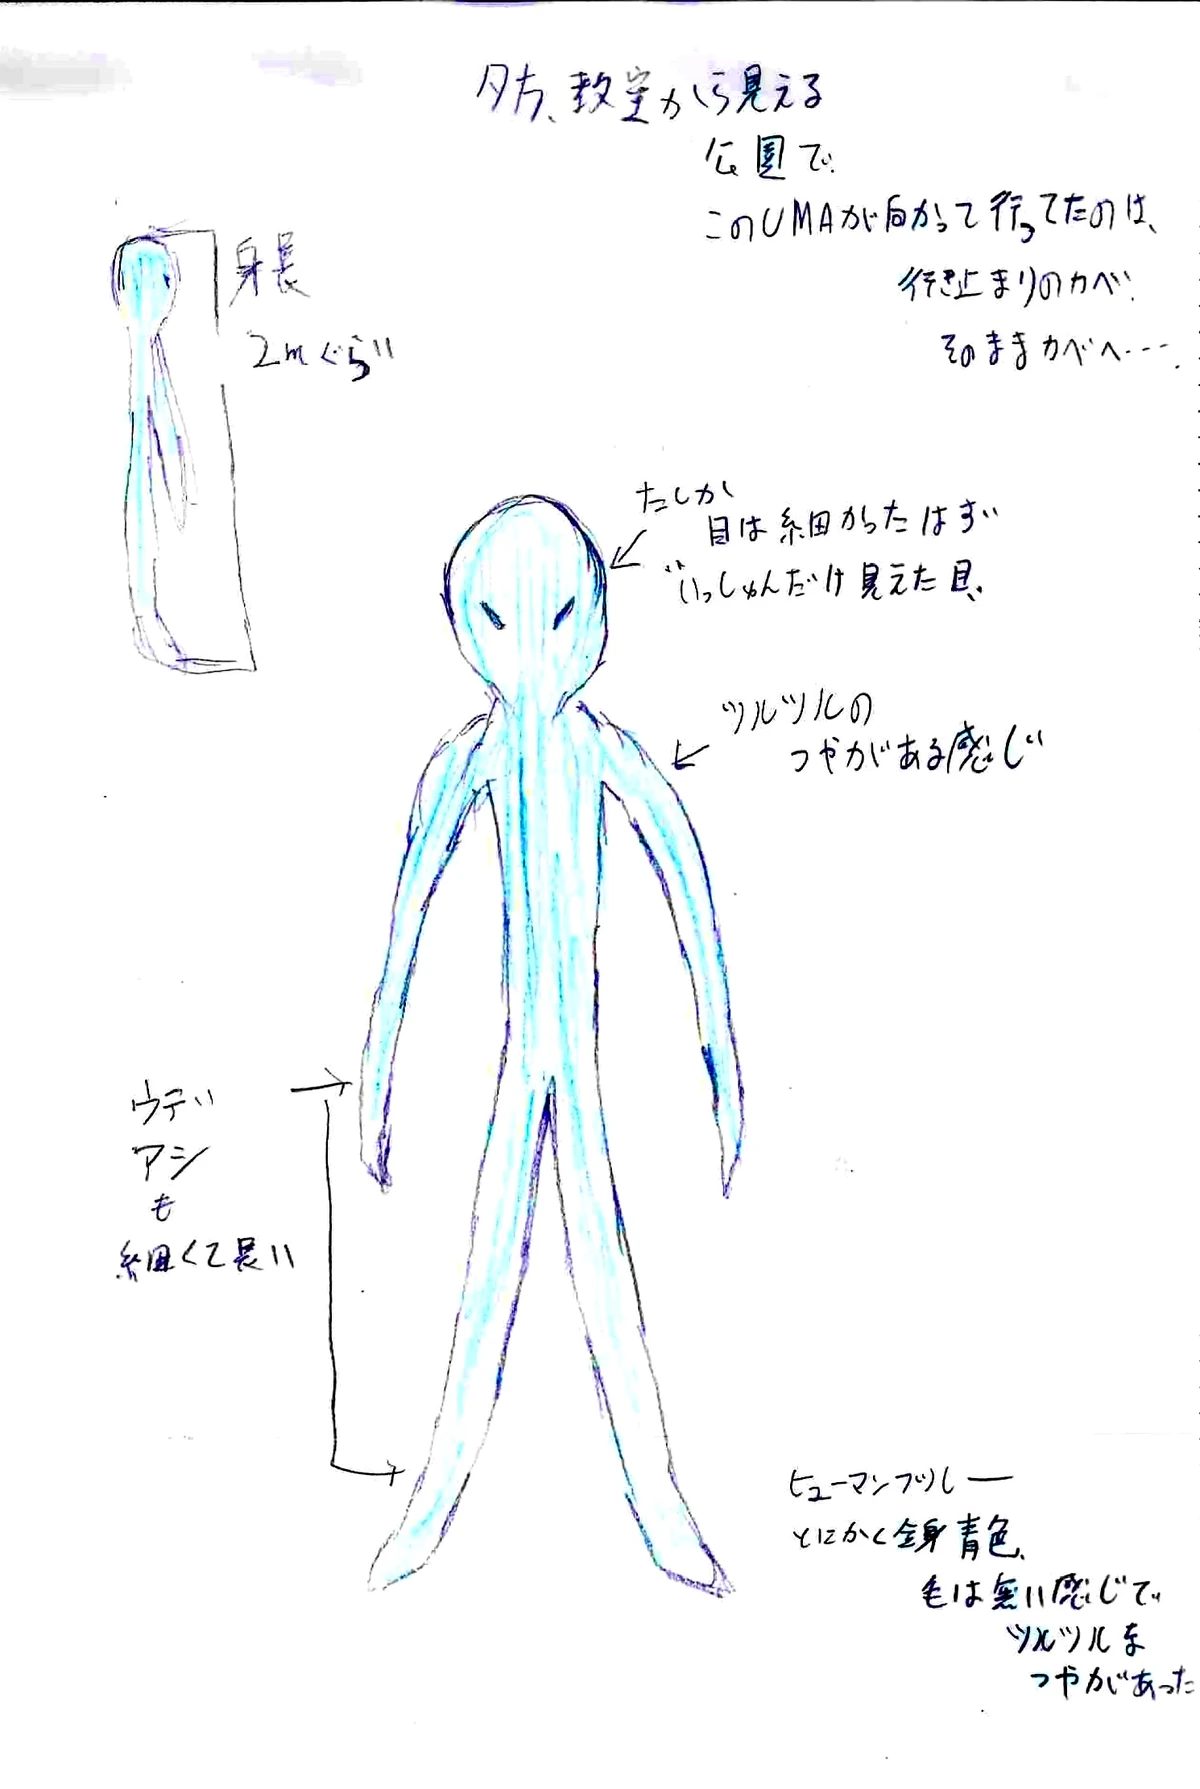 夕方、教室から見える
公園で
このUMAが向かって行ってたのは、
行き止まりのカベ
そのままカベへ……
身長
2mぐらい
たしか
目は細かったはず
いっしゅんだけ見えた目、
ツルツルの
つやがある感じ
ウデ
アシ
も
細くて長い
ヒューマンブルー
とにかく全身青色、
毛は無い感じで
ツルツルな
つやがあった